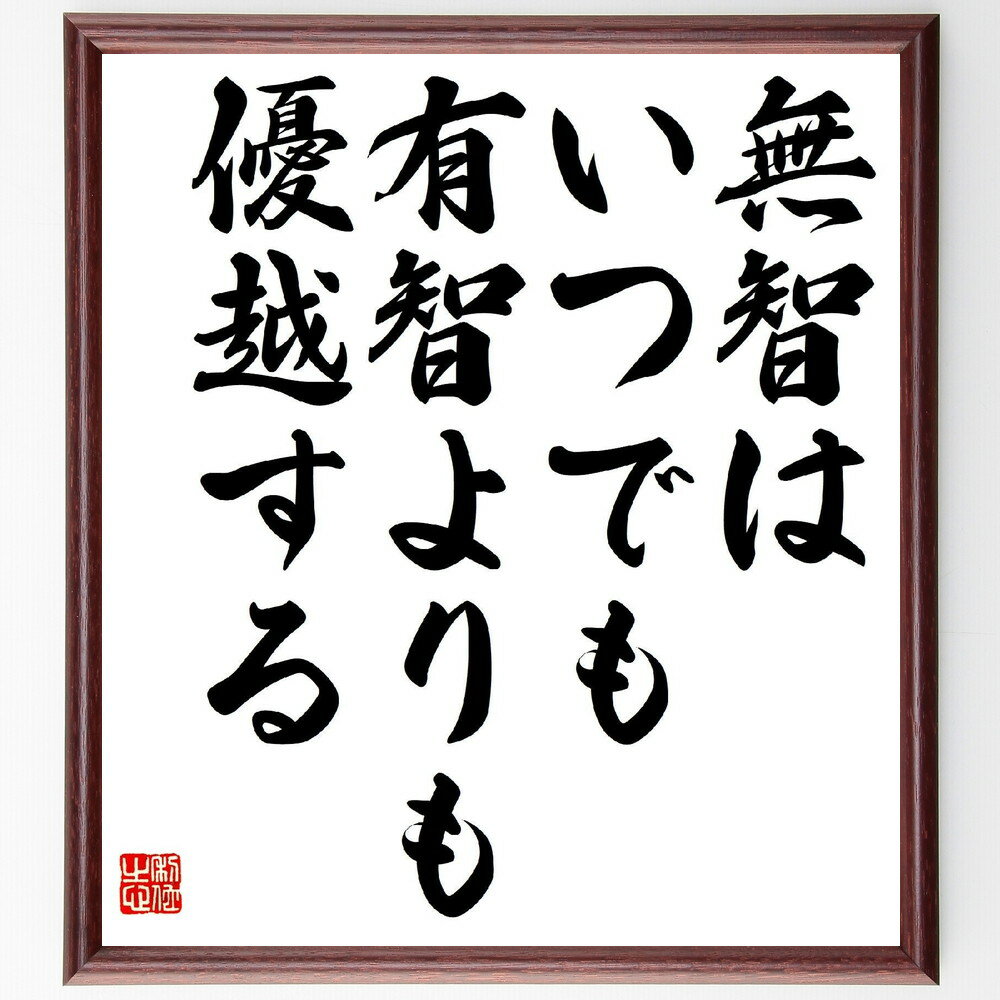 無智は
いつでも
有智よりも
優越する